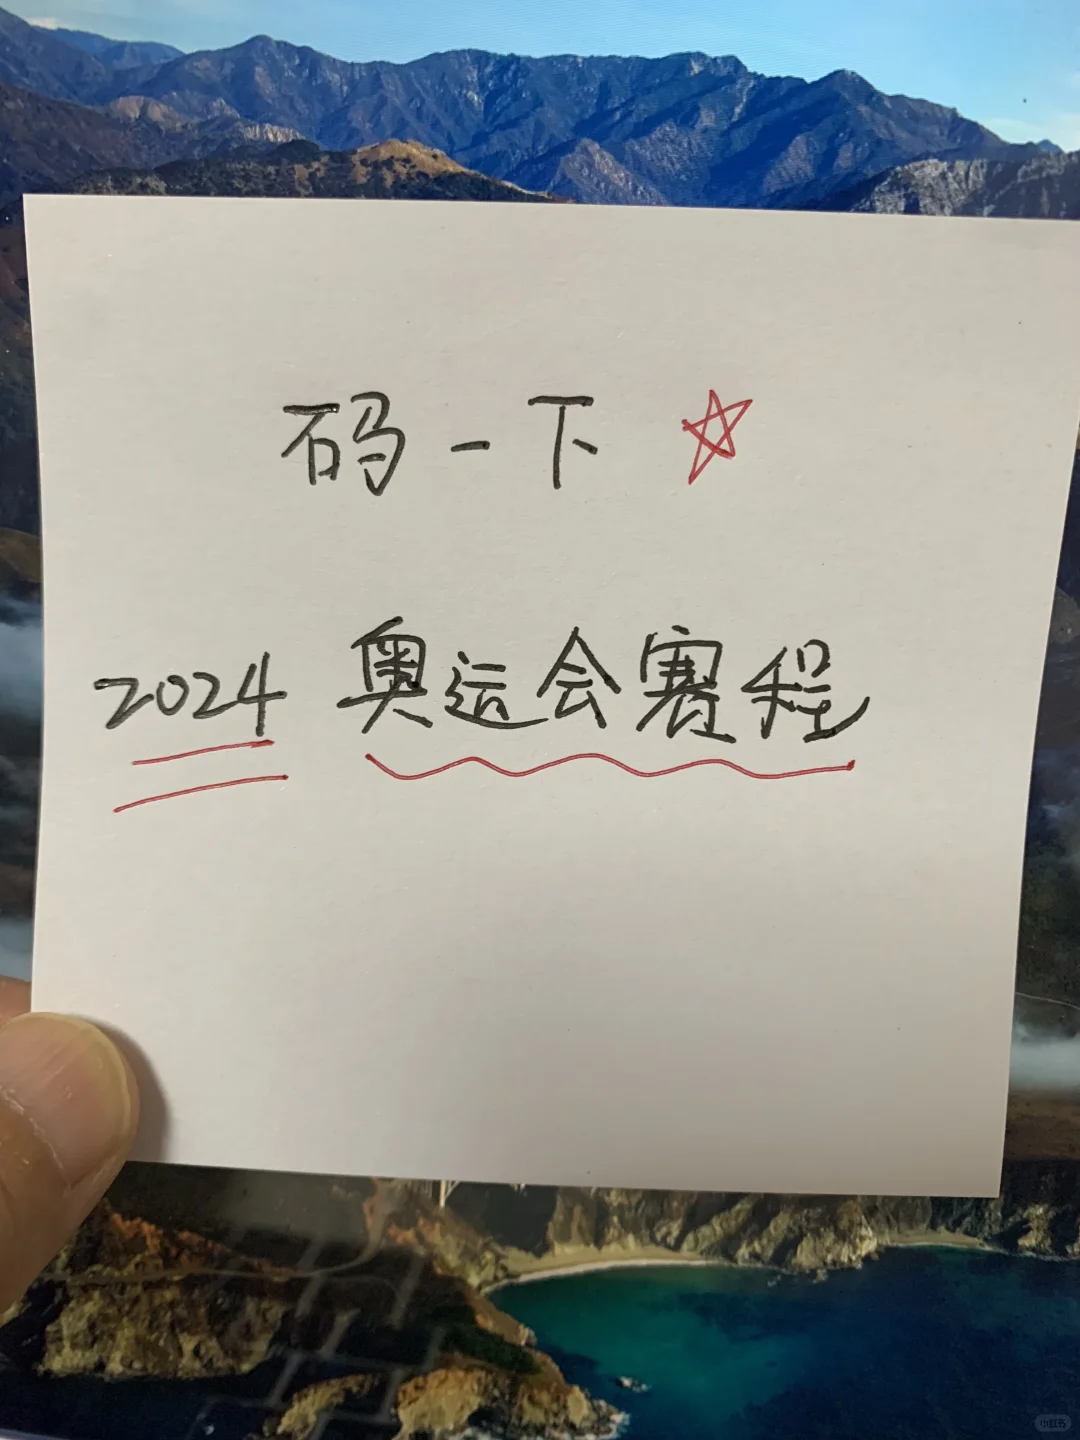 码一下
2024 奥运会赛程
小红书